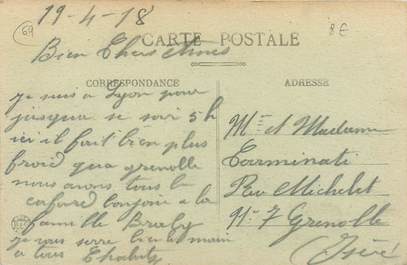 69
19-4-18
8€
CARTE POSTALE
Bien Chers Amis
CORRESPONDANCE
je suis a Lyon pour
jusqua se soir 5h
ici il fait bien plus
froid qua grenoble
nous avons tous le
cafard bonjour a la
famille
je vous serre bien la main
a tous
ADRESSE
Mr et Madame
Terminati
Rue Michelet
No 7 Grenoble
Isère